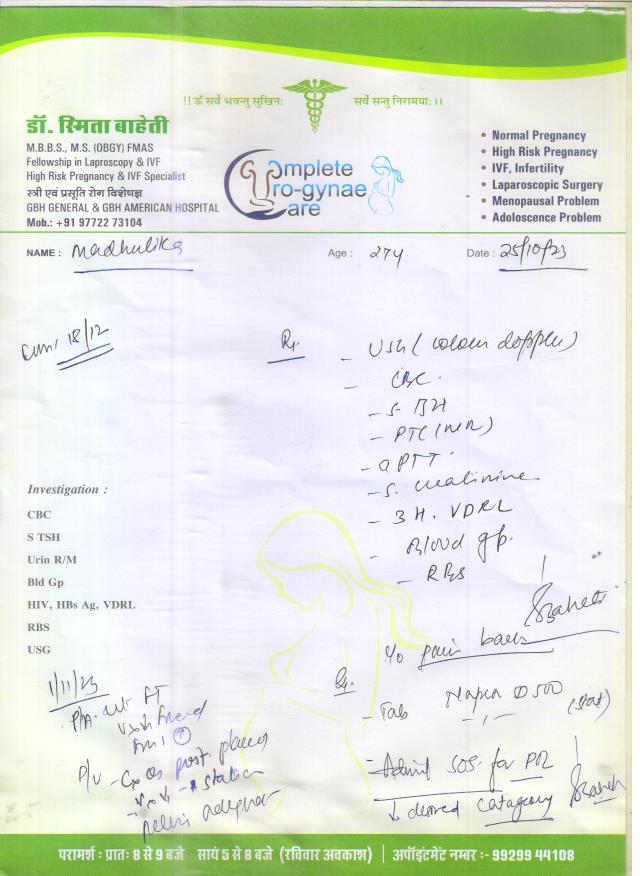 !! ॐ सर्वे भवन्तु सुखिनः सर्वे सन्तु निरामयाः ।।
डॉ. स्मिता बाहेती
M.B.B.S., M.S. (OBGY) FMAS
Fellowship in Laproscopy & IVF
High Risk Pregnancy & IVF Specialist
स्त्री एवं प्रसूति रोग विशेषज्ञ
GBH GENERAL & GBH AMERICAN HOSPITAL
Mob.: +91 97722 73104
Complete
Uro-gynae
Care
• Normal Pregnancy
• High Risk Pregnancy
• IVF, Infertility
• Laparoscopic Surgery
• Menopausal Problem
• Adoloscence Problem
NAME : Madhulika Age : 27y Date : 25/10/23
18/12
Rx
- USG (colour doppler)
- CBC.
- S. TSH
- PTC (INR)
- aPTT.
- S. creatinine
- 3H. VDRL
- Blood gp.
- RBS
Investigation :
CBC
S TSH
Urin R/M
Bld Gp
HIV, HBs Ag, VDRL
RBS
USG
Baheti
1/11/23
P/A - ut FT
c/o pain
Rx
- Tab Napra D 500 (stat)
P/V - Cx os post. placed
station
pelvis adequate
- Admit SOS for POL
desired catagory
Baheti
परामर्श : प्रातः 8 से 9 बजे सायं 5 से 8 बजे (रविवार अवकाश) | अपॉइंटमेंट नम्बर :- 99299 44108